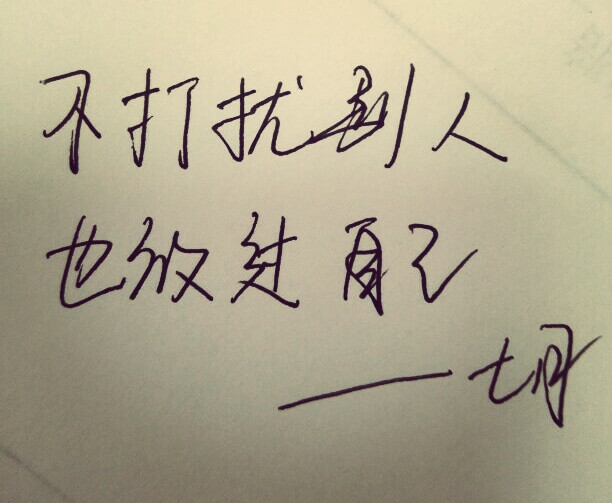 不打扰别人
也放过自己
——七月